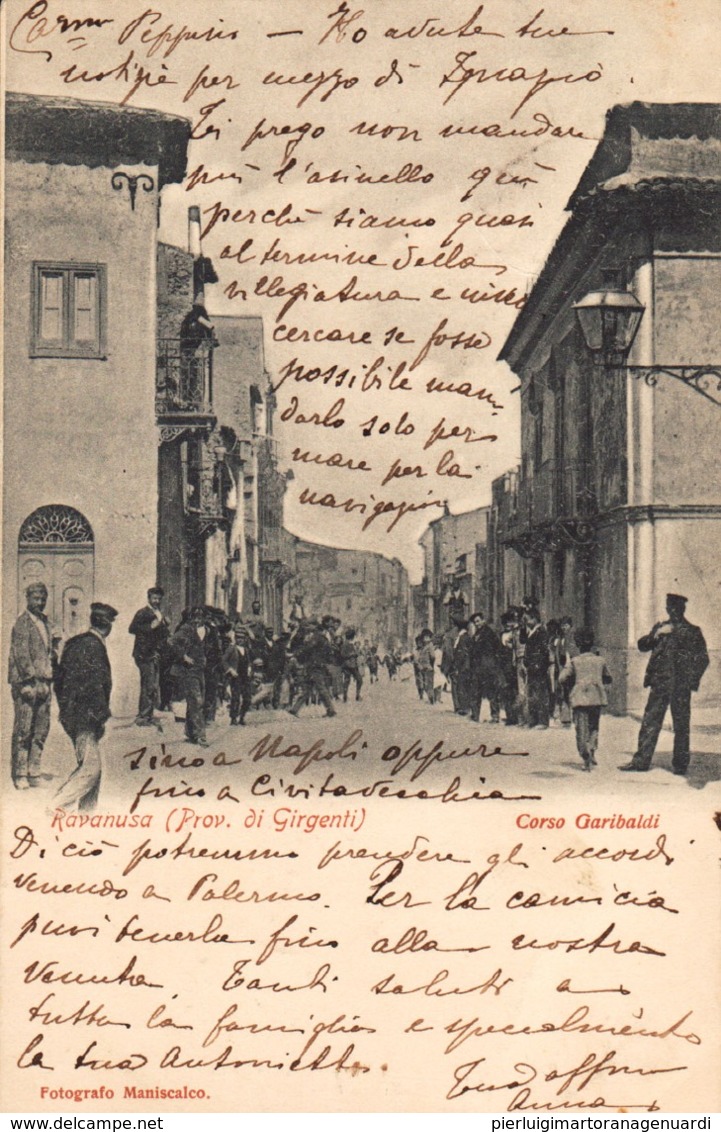 Carmo Peppino – Ho avute tue
notizie per mezzo di Ignazio.
Ti prego non mandare
più l'asinello quà
perchè siamo quasi
al termine della
villeggiatura e
cercare se fosse
possibile man
darlo solo per
mare per la
navigazione
sino a Napoli oppure
fino a Civitavecchia
Ravanusa (Prov. di Girgenti)
Corso Garibaldi
Di ciò potremmo prendere gli accordi
venendo a Palermo. Per la camicia
puoi tenerla fino alla nostra
venuta. Tanti saluti a
tutta la famiglia e specialmente
la tua Antonietta.
Tua affma
Anna
Fotografo Maniscalco.
pierluigimartoranagenuardi